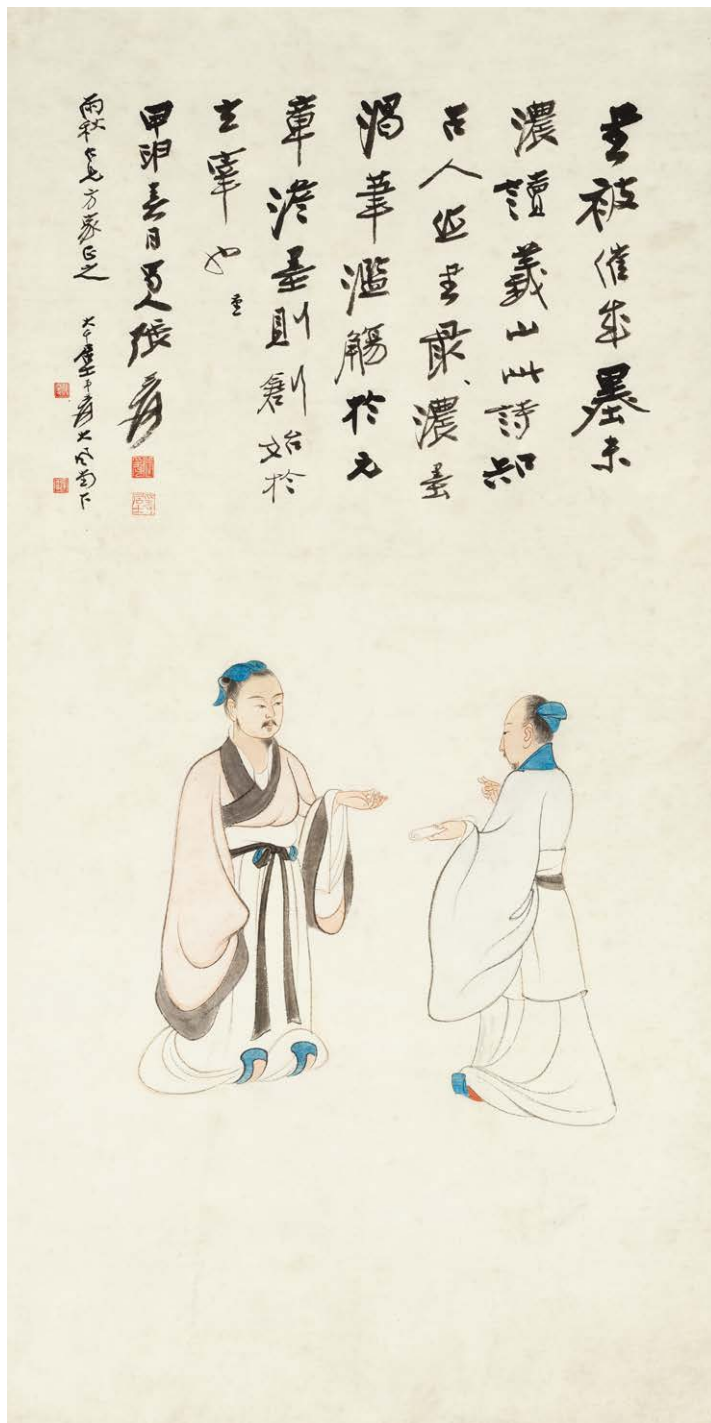 書被催成墨未
濃讀義山此詩知
古人作書最、濃墨
渴筆濫觴於元
章澹墨則創始於
玄宰也 重
甲申春日蜀人張爰
雨秋仁兄方家正之 大千爰大風堂下